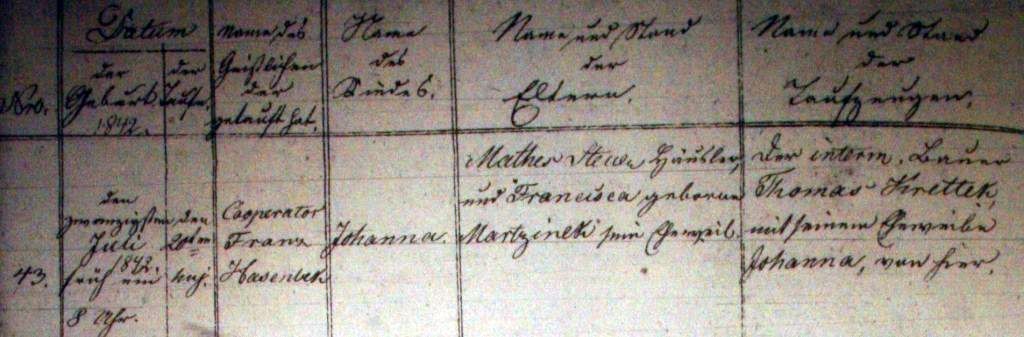 Nro.
Datum
der
Geburt
1842.
der
Taufe.
Name des
Geistlichen
der
getauft hat.
Name
des
Kindes.
Name und Stand
der
Eltern.
Name und Stand
der
Taufzeugen.
43.
den
zwanzigsten
Juli
1842.
früh um
8 Uhr.
den
huj.
Cooperator
Franz
Hasenbek
Johanna.
Mathes Häusler,
und Francisca geborne
Martzinek sein Eheweib.
Der interm. Bauer
Thomas Krettek,
mit seinem Eheweibe
Johanna, von hier.